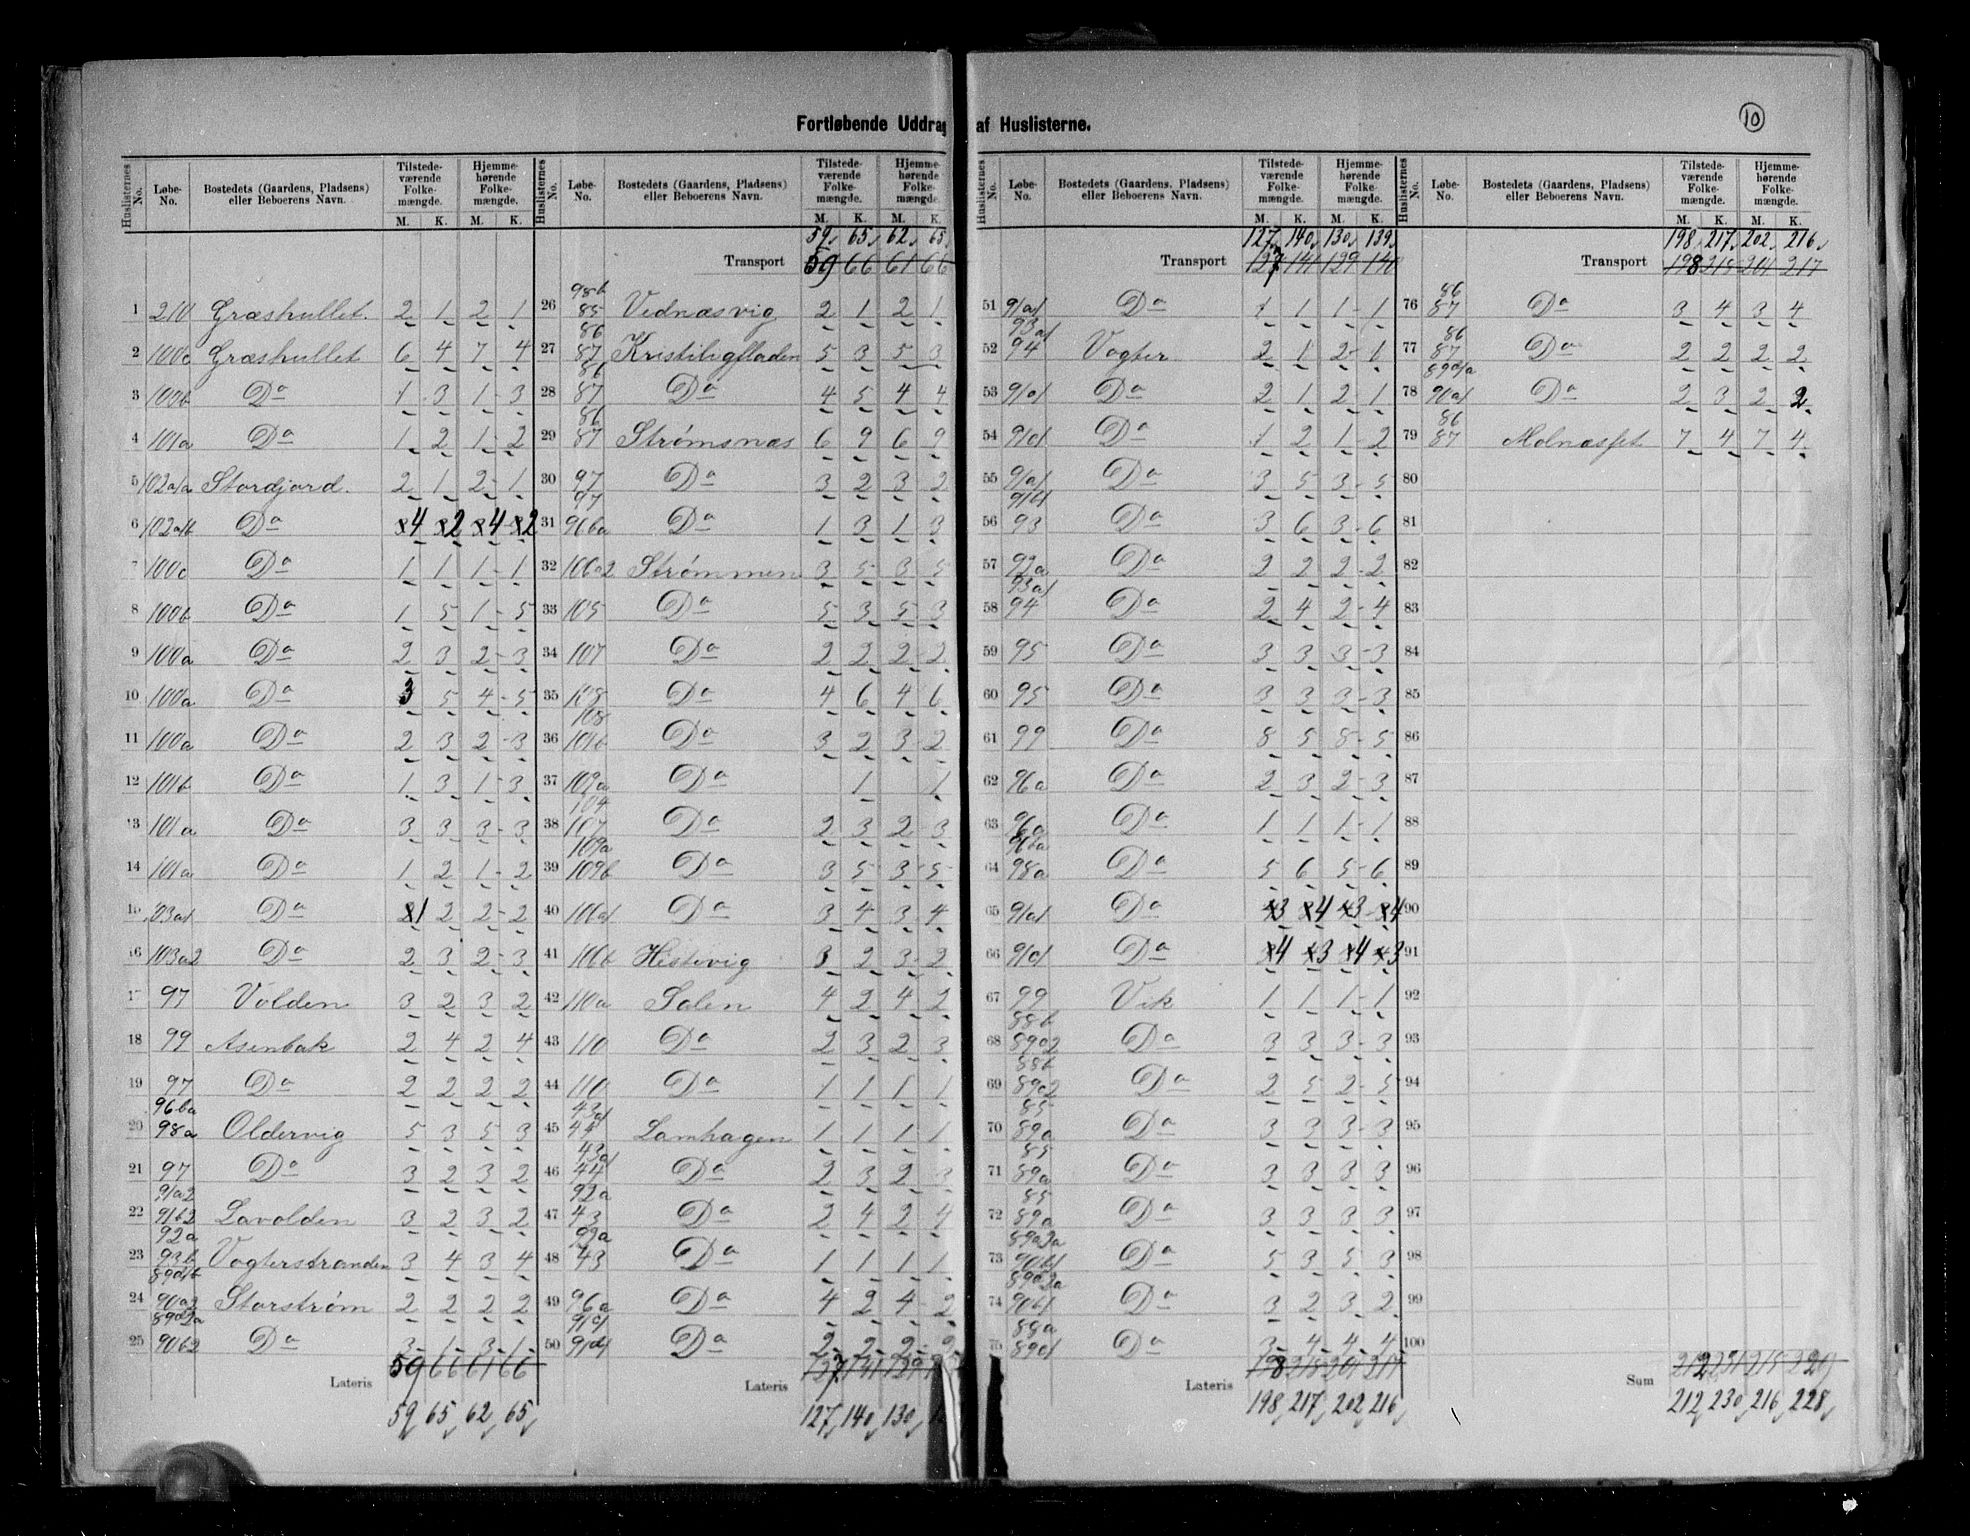 10
Fortløbende Uddrag af Huslisterne.
Huslisternes No. | Løbe-No. | Bostedets (Gaardens, Pladsens) eller Beboerens Navn. | Tilstedeværende Folkemængde. M. K. | Hjemmehørende Folkemængde. M. K.
1 210 Græshullet. 2 1 2 1
2 100c Græshullet 6 4 7 4
3 100b Do 1 3 1 3
4 101a Do 1 2 1 2
5 102a/a Stordjord. 2 1 2 1
6 102a/b Do 4 2 4 2
7 100c Do 1 1 1 1
8 100b Do 1 5 1 5
9 100a Do 2 3 2 3
10 100a Do 3 5 4 5
11 100a Do 2 3 2 3
12 101b Do 1 3 1 3
13 101a Do 3 3 3 3
14 101a Do 1 2 1 2
15 103a1 Do 1 2 2 2
16 103a2 Do 2 3 2 3
17 97 Volden 3 2 3 2
18 99 Asenbak 2 4 2 4
19 97 Do 2 2 2 2
20 96ba 98a Oldervig 5 3 5 3
21 97 Do 3 2 3 2
22 91a2 91b2 Lavolden 3 2 3 2
23 92a 93b Vogterstranden 3 4 3 4
24 89d1b 90a2 Storstrøm 2 2 2 2
25 89d2a 90b2 Do 3 1 3 1
59 66 61 66
Lateris
59 65 62 65
Huslisternes No. | Løbe-No. | Bostedets (Gaardens, Pladsens) eller Beboerens Navn. | Tilstedeværende Folkemængde. M. K. | Hjemmehørende Folkemængde. M. K.
59 65 62 65
Transport 59 66 61 66
26 98b 85 Vednæsvig 2 1 2 1
27 86 87 Kristiligfladen 5 3 5 3
28 86 87 Do 4 5 4 4
29 86 87 Strømsnæs 6 9 6 9
30 97 Do 3 2 3 2
31 97 96ba Do 1 3 1 3
32 106a2 Strømmen 3 5 3 5
33 105 Do 5 3 5 3
34 107 Do 2 2 2 2
35 108 Do 4 6 4 6
36 108 101b Do 3 2 3 2
37 109a Do 1 1
38 104 107 Do 2 3 2 3
39 109a 109b Do 3 5 3 5
40 106a1 Do 3 4 3 4
41 106b Hestevig 3 2 3 2
42 110a Salen 4 2 4 2
43 110 Do 2 3 2 3
44 110 Do 1 1 1 1
45 43a1 44 Lamhagen 1 1 1 1
46 43a1 44 Do 2 3 2 3
47 92a 43 Do 2 4 2 4
48 92a 43 Do 1 1 1 1
49 96a Do 4 2 4 2
50 91c1 91d1 Do 2 2 2 2
127 141 129
Lateris
127 140 130
Huslisternes No. | Løbe-No. | Bostedets (Gaardens, Pladsens) eller Beboerens Navn. | Tilstedeværende Folkemængde. M. K. | Hjemmehørende Folkemængde. M. K.
127 140 130 139
Transport 127 141 129 140
51 91a1 Do 1 1 1 1
52 93a1 94 Vogter 2 1 2 1
53 91a1 Do 2 1 2 1
54 91c1 Do 1 2 1 2
55 91a1 Do 3 5 3 5
56 91b1 93 Do 3 6 3 6
57 92a Do 2 2 2 2
58 93a1 94 Do 2 4 2 4
59 95 Do 3 3 3 3
60 95 Do 3 3 3 3
61 99 Do 8 5 8 5
62 96a Do 2 3 2 3
63 96a Do 1 1 1 1
64 96ba 98a Do 5 6 5 6
65 91a1 Do 3 4 3 4
66 91c1 Do 4 3 4 3
67 99 Vik 1 1 1 1
68 88b 89a2 Do 3 3 3 3
69 88b 89a2 Do 2 5 2 5
70 85 89a Do 3 3 3 3
71 85 89a Do 3 3 3 3
72 85 89a Do 3 3 3 3
73 89d2a 90b1 Do 5 3 5 3
74 89d2a 90b1 Do 3 2 3 2
75 88a 89d1 Do 3 4 4 4
198 218 201 217
Lateris
198 217 202 216
Huslisternes No. | Løbe-No. | Bostedets (Gaardens, Pladsens) eller Beboerens Navn. | Tilstedeværende Folkemængde. M. K. | Hjemmehørende Folkemængde. M. K.
198 217 202 216
Transport 198 218 201 217
76 86 87 Do 3 4 3 4
77 86 87 Do 2 2 2 2
78 89d1a 90a1 Do 2 3 2 2
79 86 87 Molnæsset 7 4 7 4
80
81
82
83
84
85
86
87
88
89
90
91
92
93
94
95
96
97
98
99
100
212 231 215 229
Sum
212 230 216 228